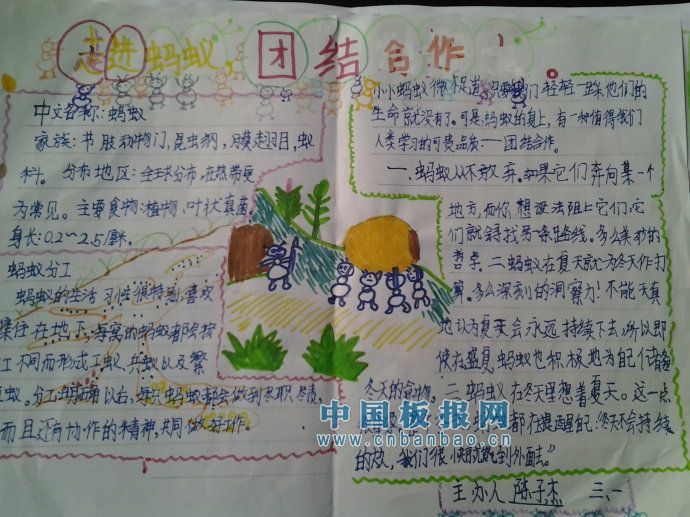 走进蚂蚁,团结合作!
中文名称:蚂蚁
家族:节肢动物门,昆虫纲,膜翅目,蚁
科。分布地区:全球分布,在热带更
为常见。主要食物:植物、叶状真菌
身长:0.2~2.5厘米。
蚂蚁分工
蚂蚁的生活习性很特别,喜欢
集住在地下,每窝的蚂蚁都会按
工不同而形成工蚁,兵蚁以及繁
蚁,分工明确以后,每只蚂蚁都会做到尽职尽责,
而且还有协作的精神,共同做好工作。
小小蚂蚁微不足道,只要我们轻轻一踩他们的
生命就没有了。可是,蚂蚁的身上,有一种值得我们
人类学习的可贵品质:——团结合作。
一、蚂蚁从不放弃。如果它们奔向某一个
地方,而你想设法阻止它们,它
们就寻找另一条路线。多么美妙的
哲学。二蚂蚁在夏天就为冬天作打
算。多么深刻的洞察力!不能天真
地认为夏天会永远持续下去,所以即
使在盛夏,蚂蚁也积极地为自己储备
冬天的食物。二蚂蚁在冬天里想着夏天。这一点
都在提醒自己:冬天不会持续
的久,我们很快就能到外面去。
主办人 陈子杰 三、一
中国板报网
www.cnbanbao.cn